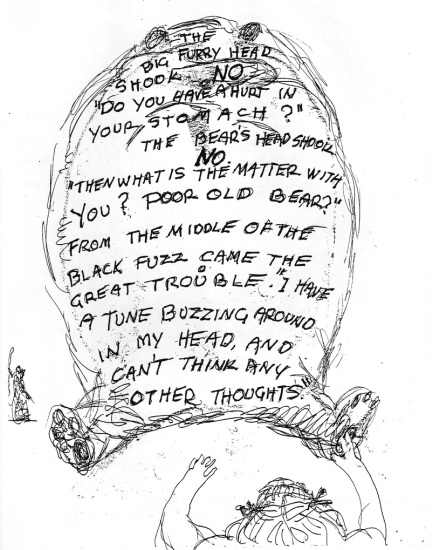 THE
BIG FURRY HEAD
SHOOK NO
"DO YOU HAVE A HURT IN
YOUR STOMACH?"
THE BEAR'S HEAD SHOOK
NO.
"THEN WHAT IS THE MATTER WITH
YOU? POOR OLD BEAR?"
FROM THE MIDDLE OF THE
BLACK FUZZ CAME THE
GREAT TROUBLE. "I HAVE
A TUNE BUZZING AROUND
IN MY HEAD, AND
CAN'T THINK ANY
OTHER THOUGHTS."